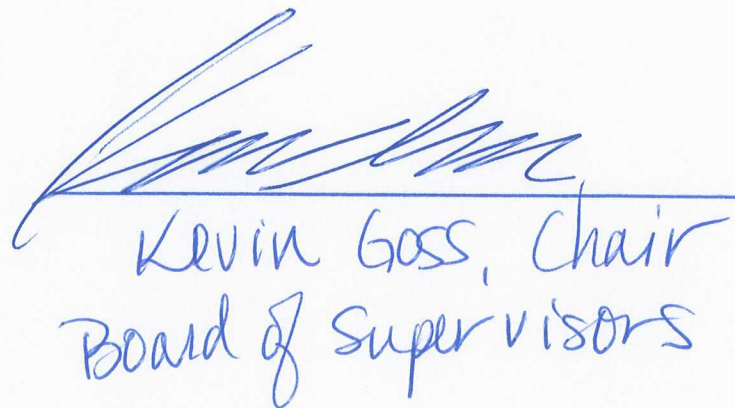 Kevin Goss, Chair
Board of Supervisors